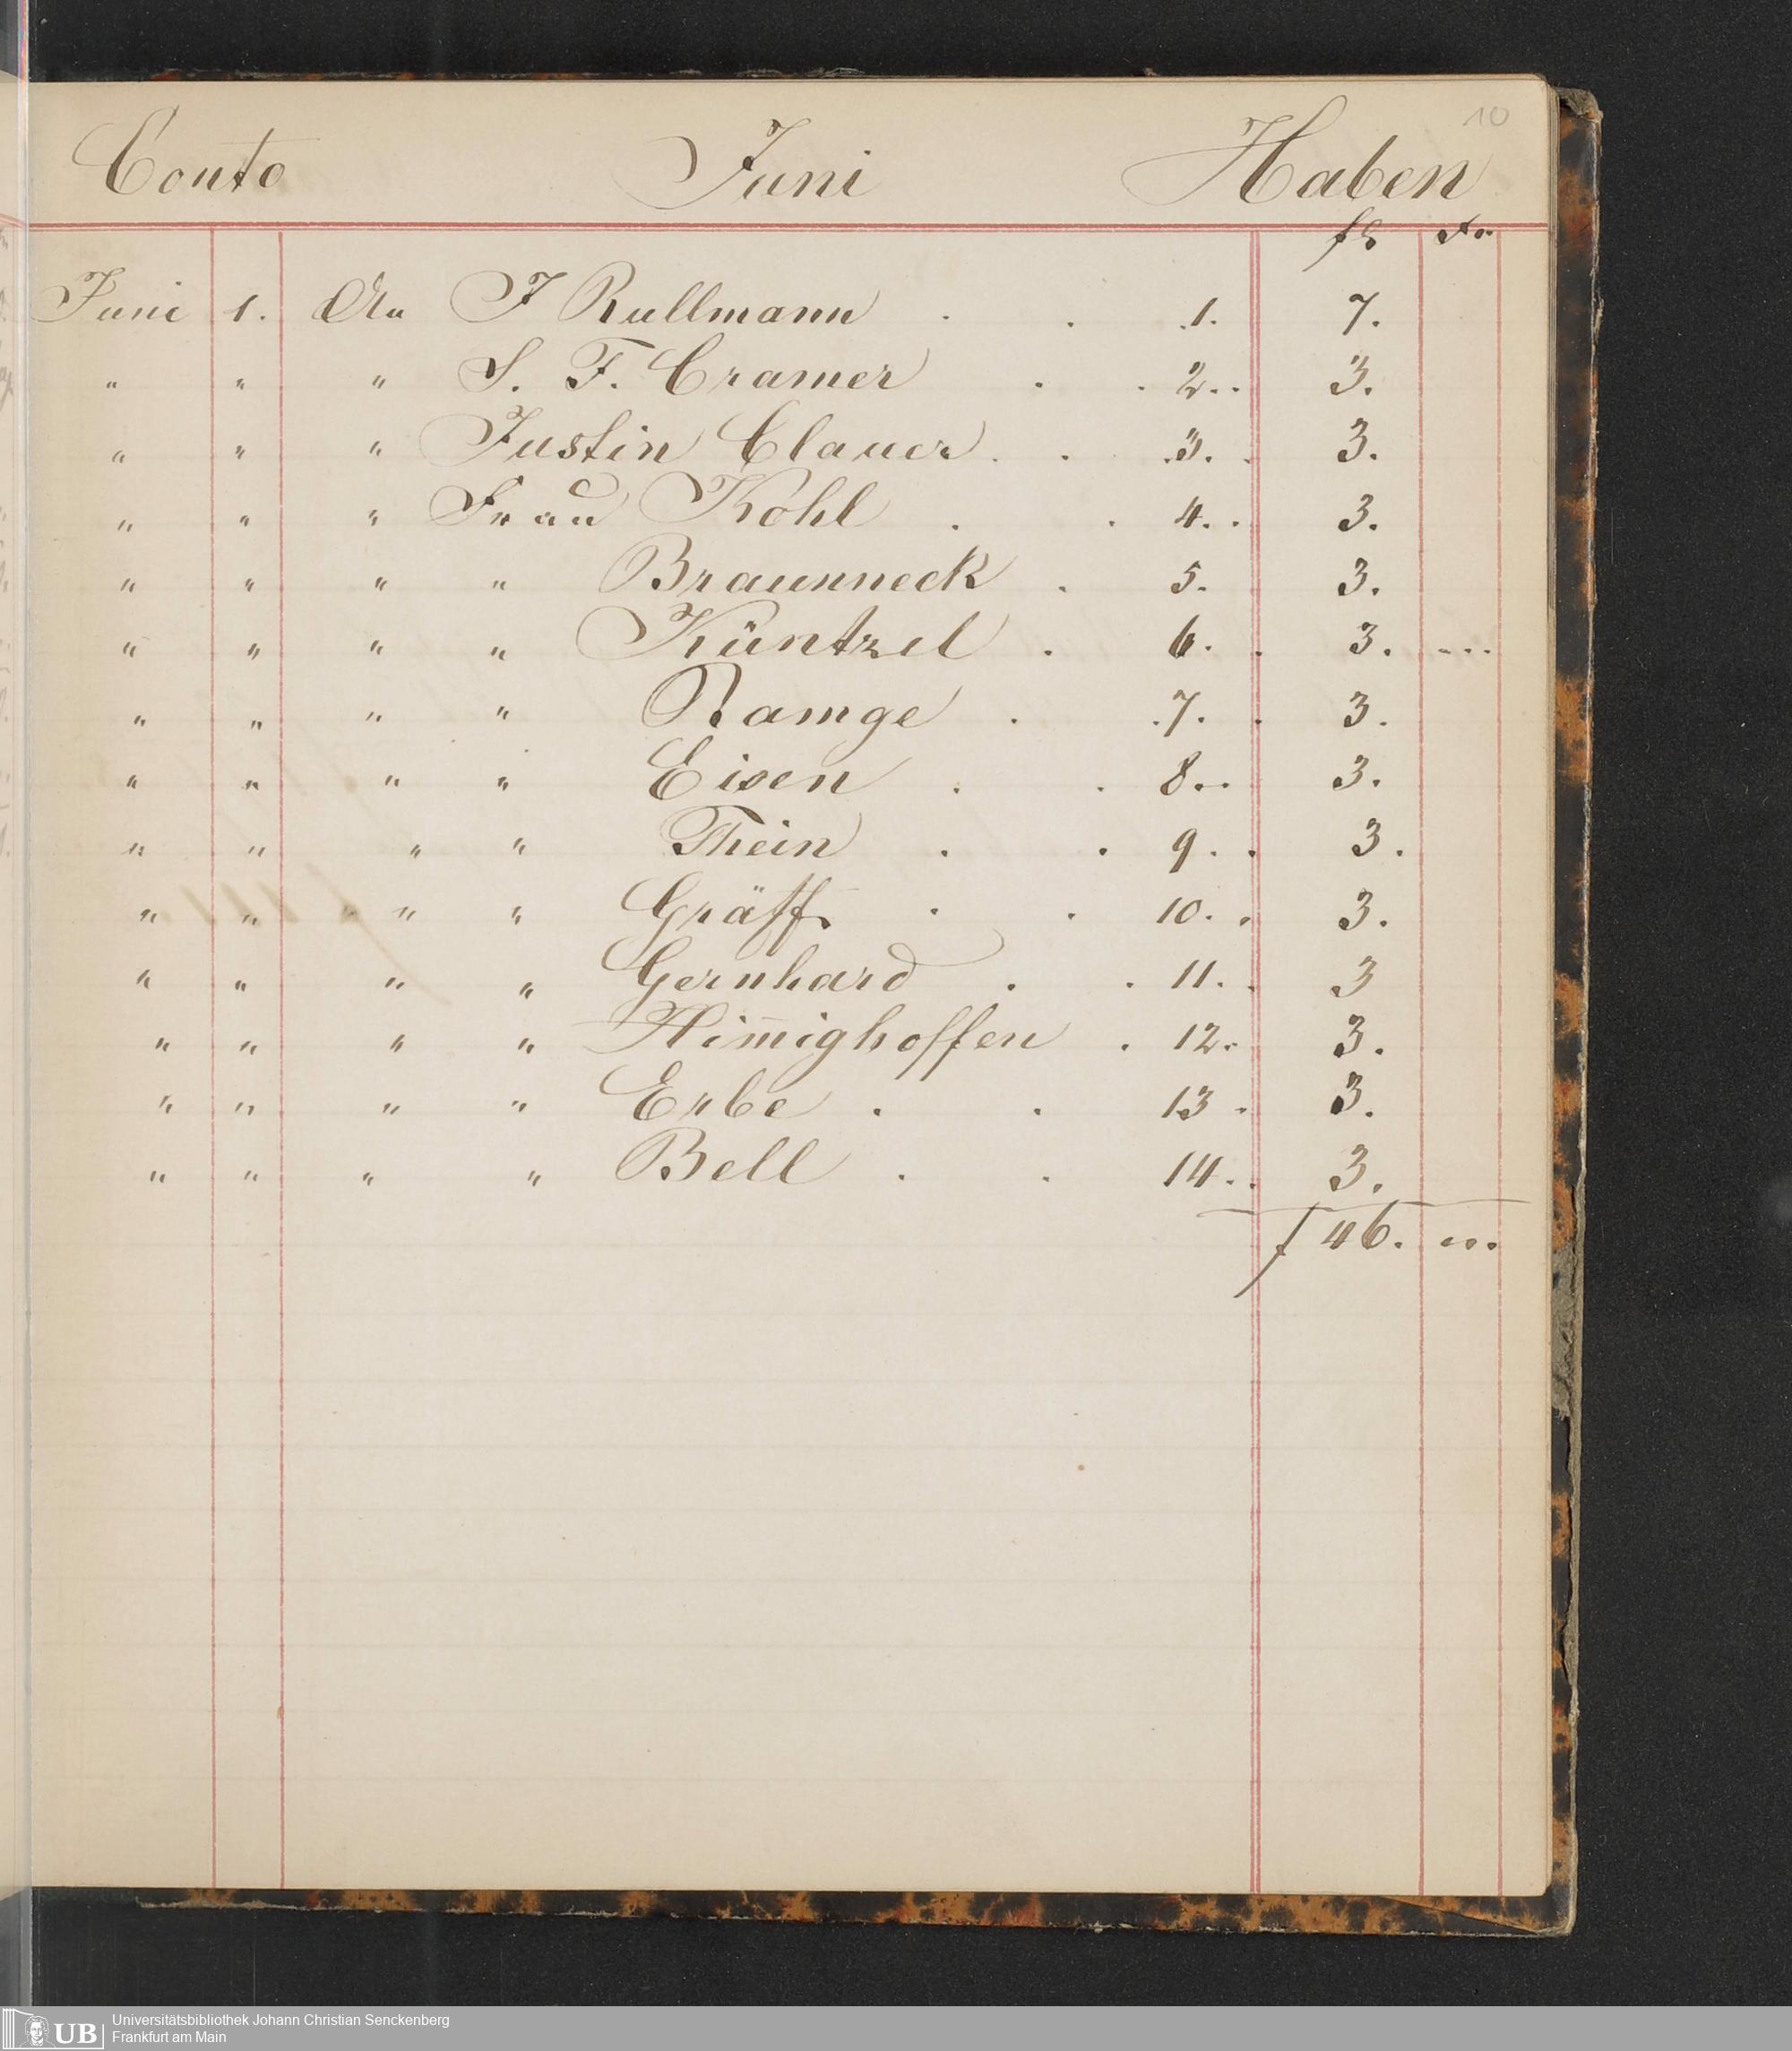 10
Conto Juni Haben
fl xr
Juni 1. An J Rullmann . . 1. 7.
" " " S. F. Cramer . . 2. . 3.
" " " Justin Clauer . . 3. . 3.
" " " Frau Kohl . . 4. . 3.
" " " " Braunneck . 5. 3.
" " " " Küntzel . 6. . 3. ...
" " " " Ramge . . 7. . 3.
" " " " Eisen . . 8. . 3.
" " " " Thein . . 9. . 3.
" " " " Gräff . . 10. . 3.
" " " " Gernhard . . 11. . 3
" " " " Him̅ighoffen . 12. 3.
" " " " Erbe . . 13 . 3.
" " " " Bell . . 14. . 3.
f 46. ...
UB Universitätsbibliothek Johann Christian Senckenberg
Frankfurt am Main